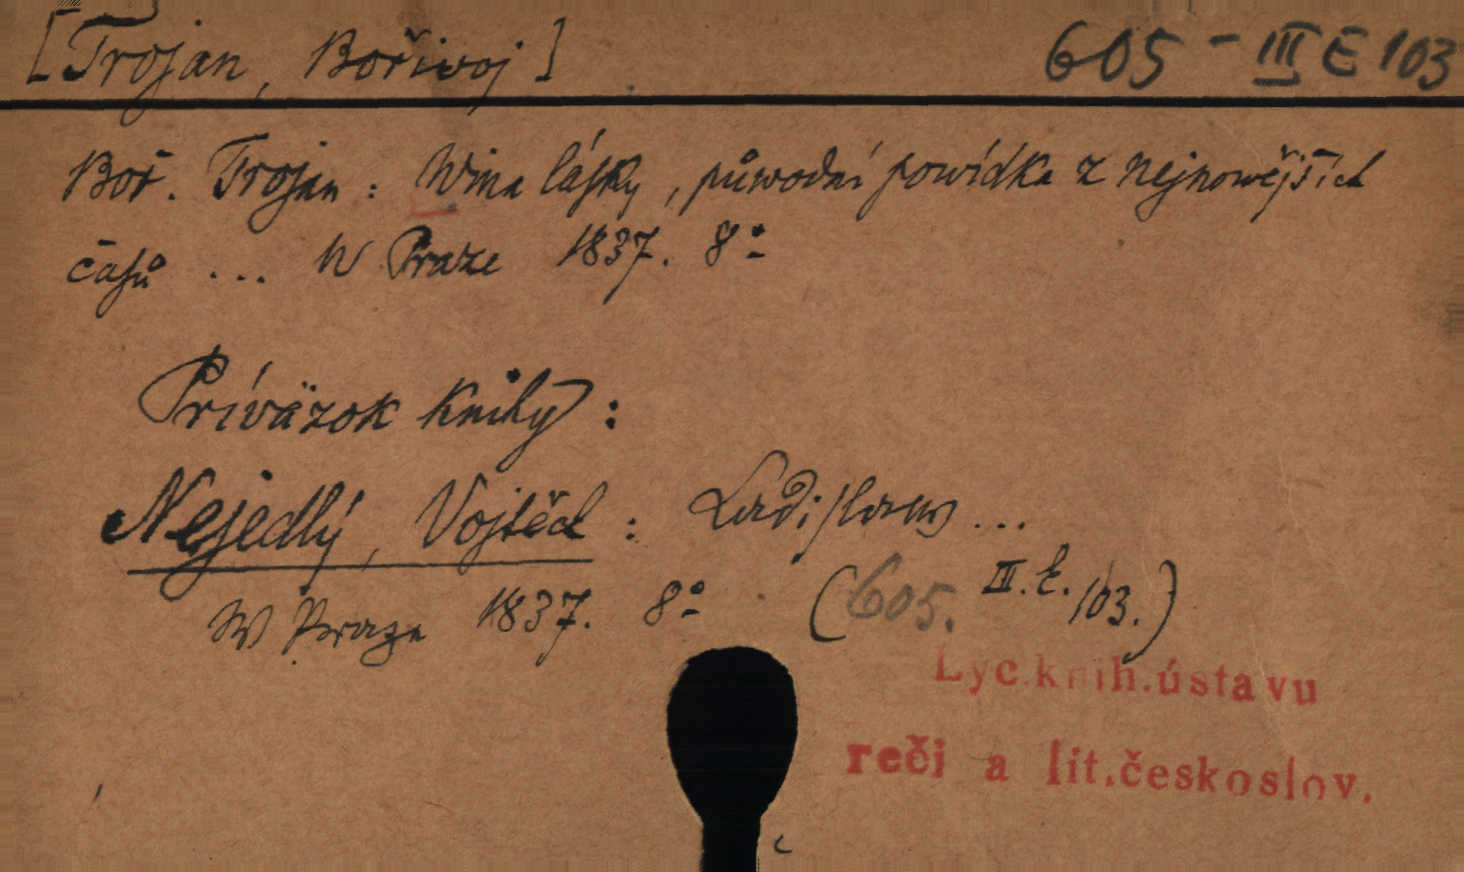 [Trojan, Bořiwoj]
605 - III E 103
Boř. Trojan: Wina láſky, půwodní powídka z nejnowějších
čaſů ... W Praze 1837. 8°
Príväzok knihy:
Nejedlý, Vojtěch: Ladiſlaw ...
W Praze 1837. 8° (605. III. E. 103.)
Lyc.knih.ústavu
reči a lit.českoslov.